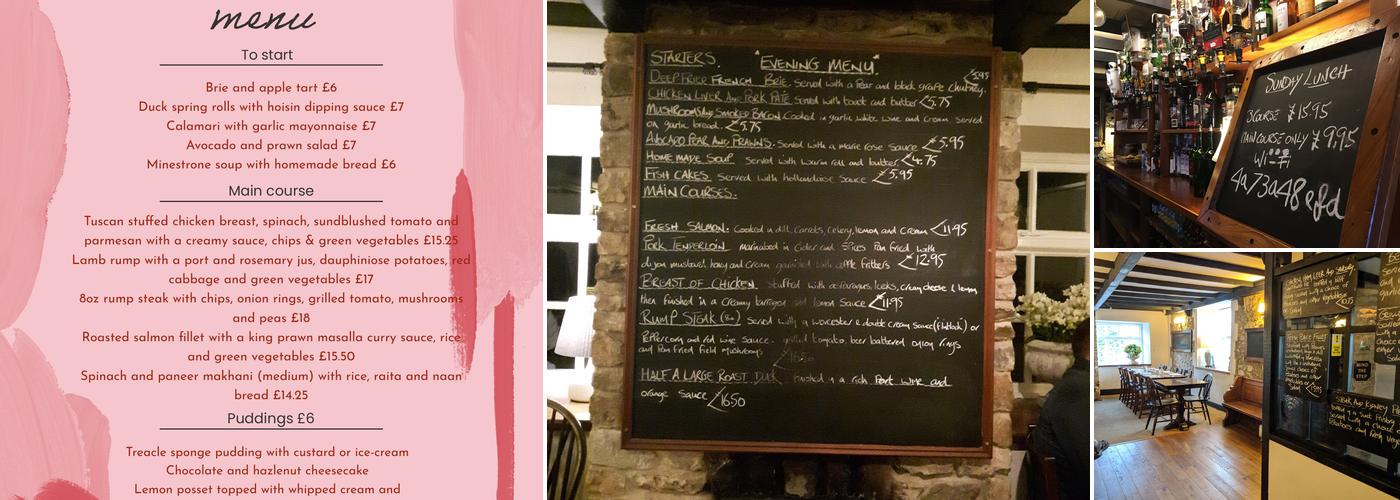 menu
To start
Brie and apple tart £6
Duck spring rolls with hoisin dipping sauce £7
Calamari with garlic mayonnaise £7
Avocado and prawn salad £7
Minestrone soup with homemade bread £6
Main course
Tuscan stuffed chicken breast, spinach, sundblushed tomato and
parmesan with a creamy sauce, chips & green vegetables £15.25
Lamb rump with a port and rosemary jus, dauphiniose potatoes, red
cabbage and green vegetables £17
8oz rump steak with chips, onion rings, grilled tomato, mushrooms
and peas £18
Roasted salmon fillet with a king prawn masalla curry sauce, rice
and green vegetables £15.50
Spinach and paneer makhani (medium) with rice, raita and naan
bread £14.25
Puddings £6
Treacle sponge pudding with custard or ice-cream
Chocolate and hazlenut cheesecake
Lemon posset topped with whipped cream and
STARTERS. "EVENING MENU"
DEEP FRIED FRENCH BRIE. Served with a Pear and black grape chutney. £5.95
CHICKEN LIVER AND PORK PATE. Served with toast and butter £5.75
MUSHROOMS AND SMOKED BACON Cooked in garlic white wine and cream served
on garlic bread. £5.75
AVOCADO PEAR AND PRAWNS. Served with a marie rose sauce £5.95
HOME MADE SOUP Served with warm roll and butter £4.75
FISH CAKES. Served with hollandaise sauce £5.95
MAIN COURSES.
FRESH SALMON. Cooked in dill, carrots, celery, lemon and cream £11.95
PORK TENDERLOIN marinated in cider and spices Pan fried with
dijon mustard honey and cream garnished with apple fritters £12.95
BREAST OF CHICKEN. Stuffed with asparagus, leeks, cream cheese & lemon
then finished in a creamy tarragon and lemon sauce £11.95
RUMP STEAK (8oz) Served with a worcester & double cream sauce (flatback) or
Peppercorn and red wine sauce. grilled tomato, beer battered onion rings
and Pan fried field mushrooms £16.50
HALF A LARGE ROAST DUCK finished in a rich Port wine and
orange sauce £16.50
SUNDAY LUNCH
3 COURSE £15.95
MAIN COURSE ONLY £9,95
Wi-Fi
4a73a48efd
MIND
THE
STEP
STEAK AND KIDNEY